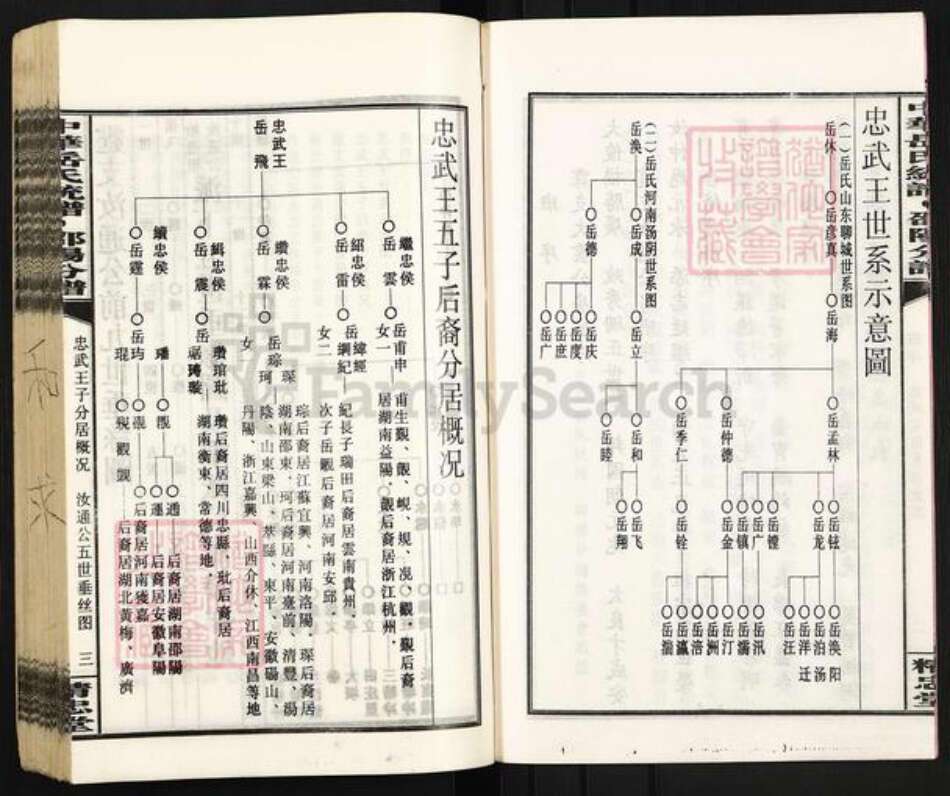 忠武王世系示意圖
(一)岳氏山东聊城世系图
岳休
岳彦真
岳海
岳孟林
岳仲德
岳季仁
岳铉
岳龙
岳镗
岳广
岳镇
岳金
岳铨
岳涣
岳阳
岳泊
岳汤
岳洋
岳迁
岳汪
岳汛
岳灞
岳汀
岳洲
岳涪
岳瀛
(二)岳氏河南汤阴世系图
岳涣
岳成
岳德
岳立
岳庆
岳度
岳庶
岳广
岳和
岳睦
岳飞
岳翔
忠武王五子后裔分居概况
忠武王
岳飛
繼忠侯
岳雲
岳甫申
女一
甫生觀、覬、蜆、規、況、觀、覲后裔
居湖南益陽、覬后裔居浙江杭州。
紹忠侯
岳雷
岳緯經
綱紀
女二
紀長子瑞田后裔居雲南貴州。
次子岳覬后裔居河南安邱。
纘忠侯
岳霖
岳琮琛
珂
女
琮后裔居江蘇宜興、河南洛陽。琛后裔居
湖南邵東。珂后裔居河南臺前、清豐、湯
陰、山東梁山、莘縣、東平、安徽碭山、
丹陽、浙江嘉興、山西介休、江西南昌等地
緝忠侯
岳震
瓚琯玭
瓚后裔居四川忠縣、玭后裔居
湖南衡東、常德等地。
續忠侯
岳霆
岳均
璠
琨
通
蓮
后裔居湖南邵陽
后裔居安徽阜陽
后裔居河南獲嘉
后裔居湖北黄梅、廣濟
忠武王子分居概况
汝通公五世垂丝图
三
精忠堂
中華岳氏統譜
邵陽分譜
精忠堂
中華岳氏統譜
邵陽分譜
FamilySearch